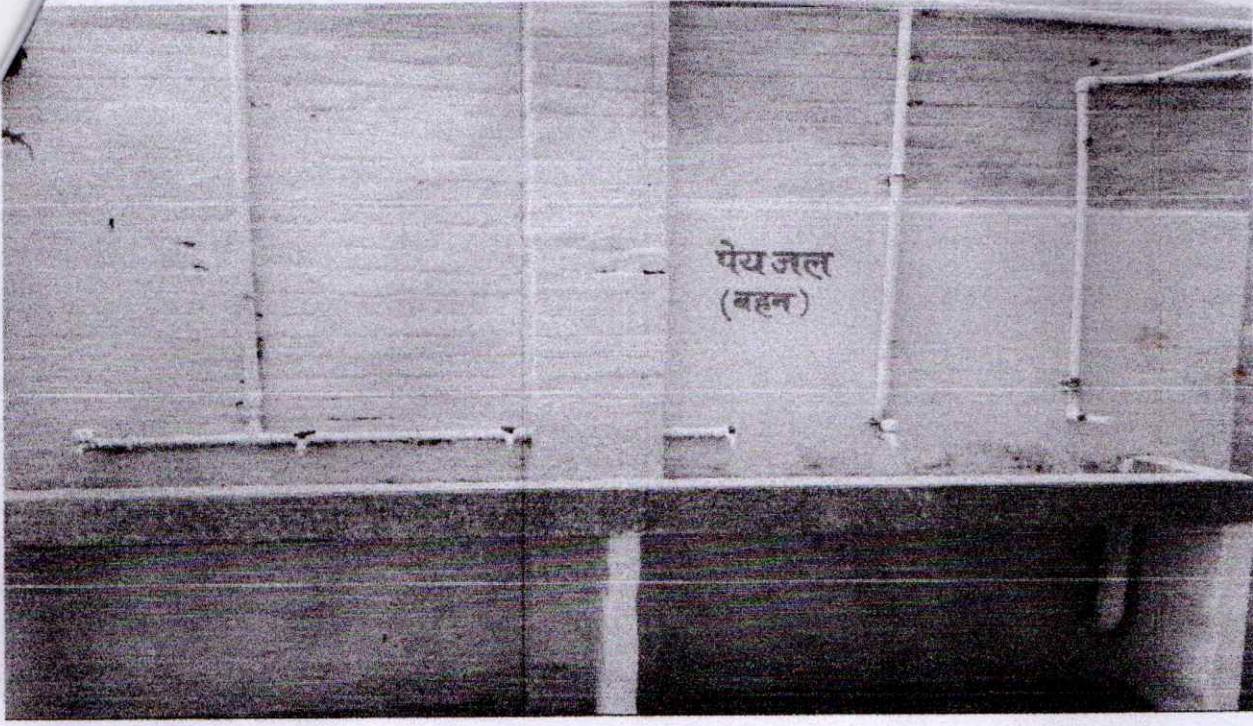 पेय जल
(बहन)